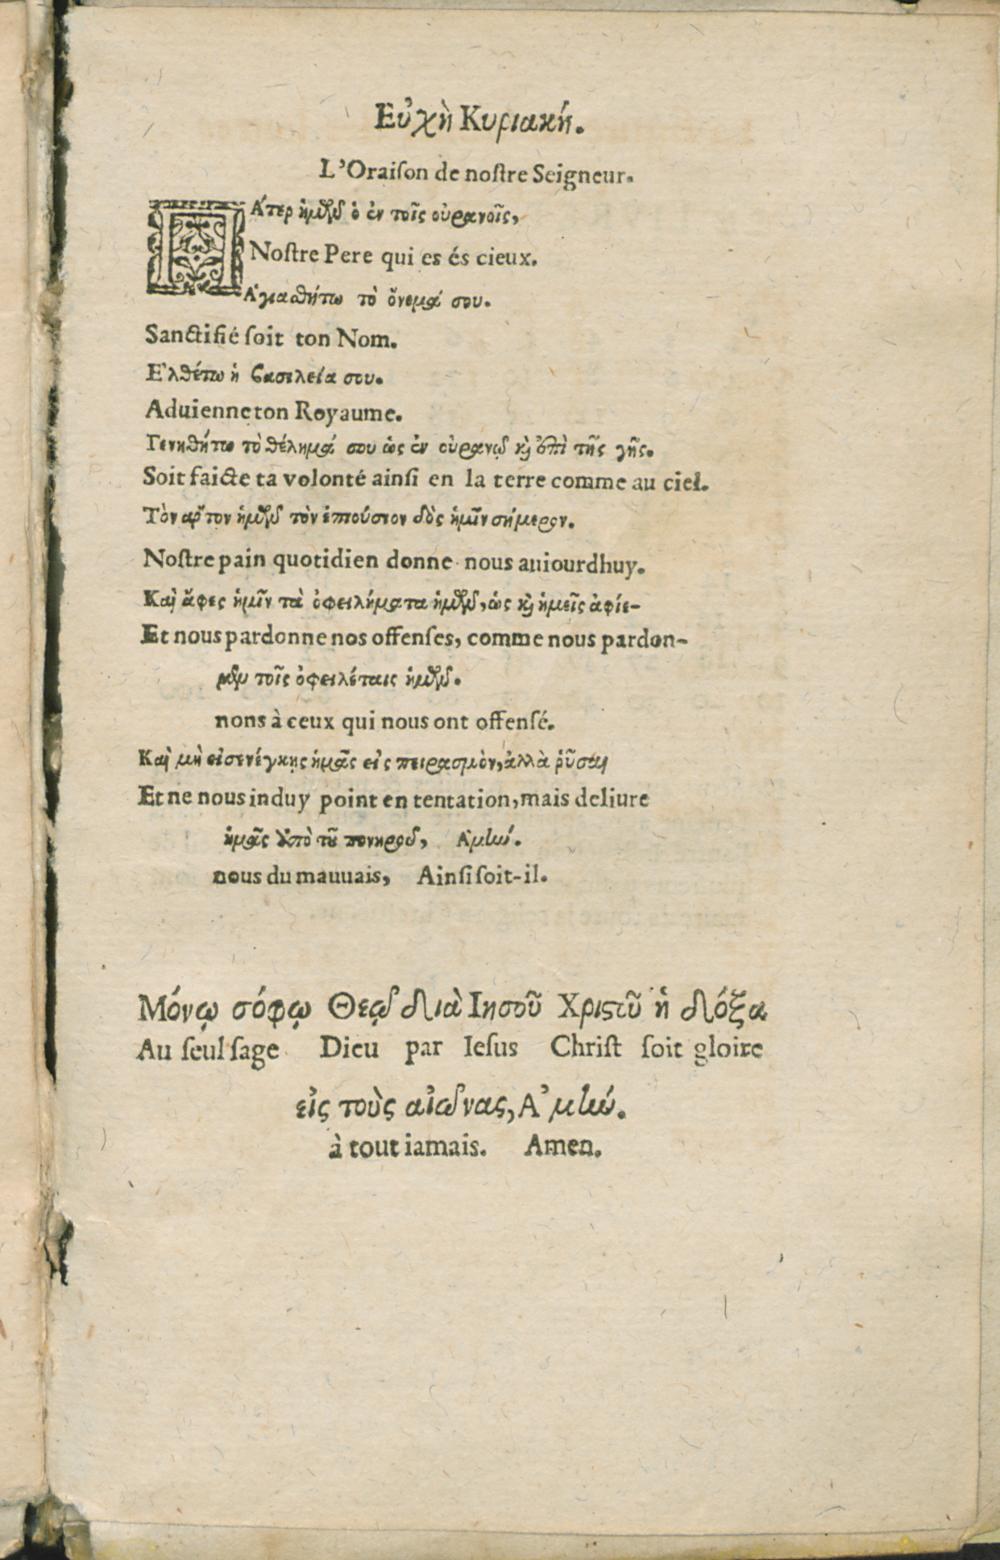 Εὐχὴ Κυριακή.
L'Oraiſon de noſtre Seigneur.
ΠΆτερ ἡμῶν ὁ ἐν τοῖς οὐρανοῖς,
Noſtre Pere qui es és cieux.
Α῾γιασθήτω τὸ ὄνομά σου.
Sanctifié ſoit ton Nom.
Ε᾿λθέτω ἡ βασιλεία σου.
Aduienne ton Royaume.
Γενηθήτω τὸ θέλημά σου ὡς ἐν οὐρανῷ καὶ ἐπὶ τῆς γῆς.
Soit faicte ta volonté ainſi en la terre comme au ciel.
Τὸν ἄρτον ἡμῶν τὸν ἐπιούσιον δὸς ἡμῖν σήμερον.
Noſtre pain quotidien donne nous auiourdhuy.
Καὶ ἄφες ἡμῖν τὰ ὀφειλήματα ἡμῶν, ὡς καὶ ἡμεῖς ἀφίε-
Et nous pardonne nos offenſes, comme nous pardon-
μεν τοῖς ὀφειλέταις ἡμῶν.
nons à ceux qui nous ont offenſé.
Καὶ μὴ εἰσενέγκῃς ἡμᾶς εἰς πειρασμὸν, ἀλλὰ ῥῦσαι
Et ne nous induy point en tentation, mais deliure
ἡμᾶς ἀπὸ τοῦ πονηροῦ, Α᾿μήν.
nous du mauuais, Ainſi ſoit-il.
Μόνῳ σόφῳ Θεῷ διὰ Ιησοῦ Χριστοῦ ἡ δόξα
Au ſeul ſage Dieu par Ieſus Chriſt ſoit gloire
εἰς τοὺς αἰῶνας, Α᾿μήν.
à tout iamais. Amen.